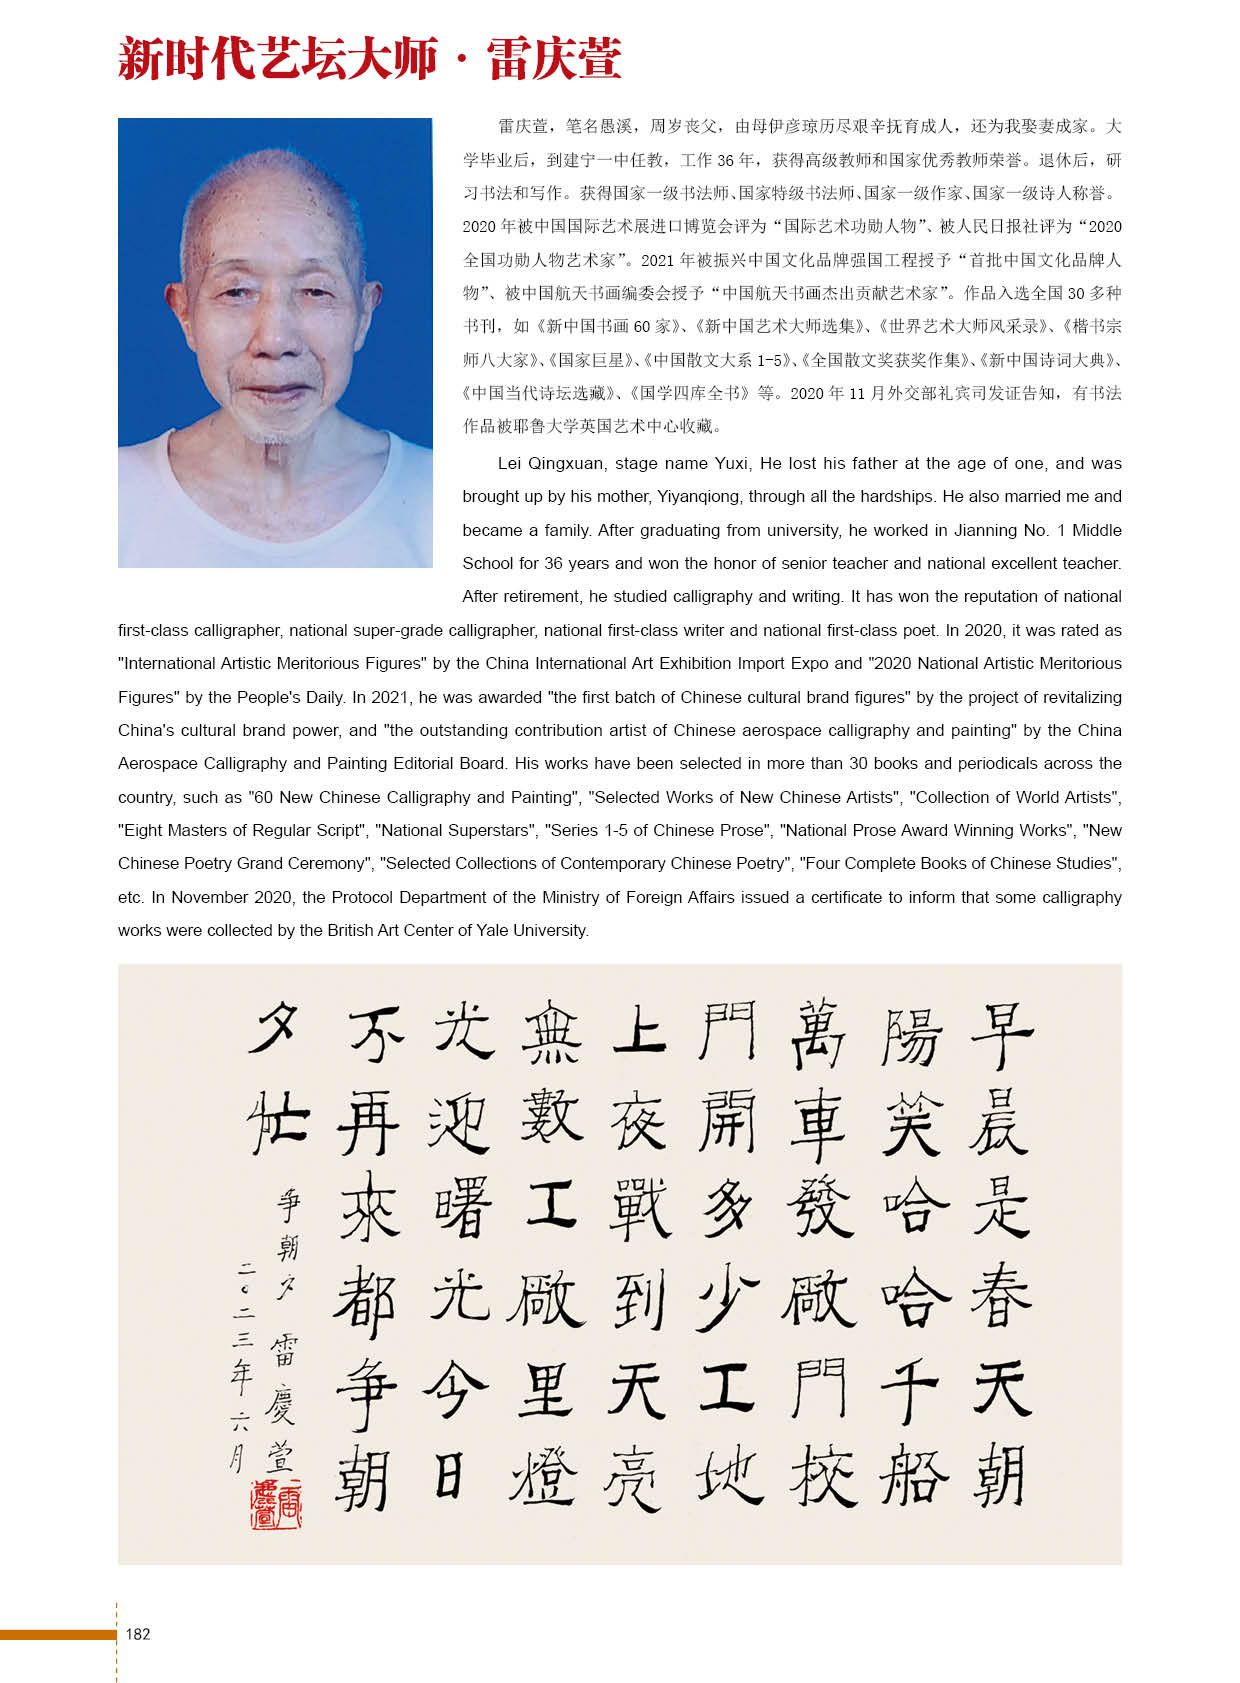 新时代艺坛大师·雷庆萱
雷庆萱，笔名愚溪，周岁丧父，由母伊彦琼历尽艰辛抚育成人，还为我娶妻成家。大
学毕业后，到建宁一中任教，工作 36 年，获得高级教师和国家优秀教师荣誉。退休后，研
习书法和写作。获得国家一级书法师、国家特级书法师、国家一级作家、国家一级诗人称誉。
2020 年被中国国际艺术展进口博览会评为“国际艺术功勋人物”、被人民日报社评为“2020
全国功勋人物艺术家”。2021 年被振兴中国文化品牌强国工程授予“首批中国文化品牌人
物”、被中国航天书画编委会授予“中国航天书画杰出贡献艺术家”。作品入选全国 30 多种
书刊，如《新中国书画 60 家》、《新中国艺术大师选集》、《世界艺术大师风采录》、《楷书宗
师八大家》、《国家巨星》、《中国散文大系 1-5》、《全国散文奖获奖作集》、《新中国诗词大典》、
《中国当代诗坛选藏》、《国学四库全书》等。2020 年 11 月外交部礼宾司发证告知，有书法
作品被耶鲁大学英国艺术中心收藏。
Lei Qingxuan, stage name Yuxi, He lost his father at the age of one, and was
brought up by his mother, Yiyanqiong, through all the hardships. He also married me and
became a family. After graduating from university, he worked in Jianning No. 1 Middle
School for 36 years and won the honor of senior teacher and national excellent teacher.
After retirement, he studied calligraphy and writing. It has won the reputation of national
first-class calligrapher, national super-grade calligrapher, national first-class writer and national first-class poet. In 2020, it was rated as
"International Artistic Meritorious Figures" by the China International Art Exhibition Import Expo and "2020 National Artistic Meritorious
Figures" by the People's Daily. In 2021, he was awarded "the first batch of Chinese cultural brand figures" by the project of revitalizing
China's cultural brand power, and "the outstanding contribution artist of Chinese aerospace calligraphy and painting" by the China
Aerospace Calligraphy and Painting Editorial Board. His works have been selected in more than 30 books and periodicals across the
country, such as "60 New Chinese Calligraphy and Painting", "Selected Works of New Chinese Artists", "Collection of World Artists",
"Eight Masters of Regular Script", "National Superstars", "Series 1-5 of Chinese Prose", "National Prose Award Winning Works", "New
Chinese Poetry Grand Ceremony", "Selected Collections of Contemporary Chinese Poetry", "Four Complete Books of Chinese Studies",
etc. In November 2020, the Protocol Department of the Ministry of Foreign Affairs issued a certificate to inform that some calligraphy
works were collected by the British Art Center of Yale University.
早晨是春天朝
陽笑哈哈千船
萬車發廠門校
門開多少工地
上夜戰到天亮
無數工廠里燈
光迎曙光今日
不再來都争朝
夕忙
争朝夕 雷慶萱
二〇二三年六月
雷慶萱
182